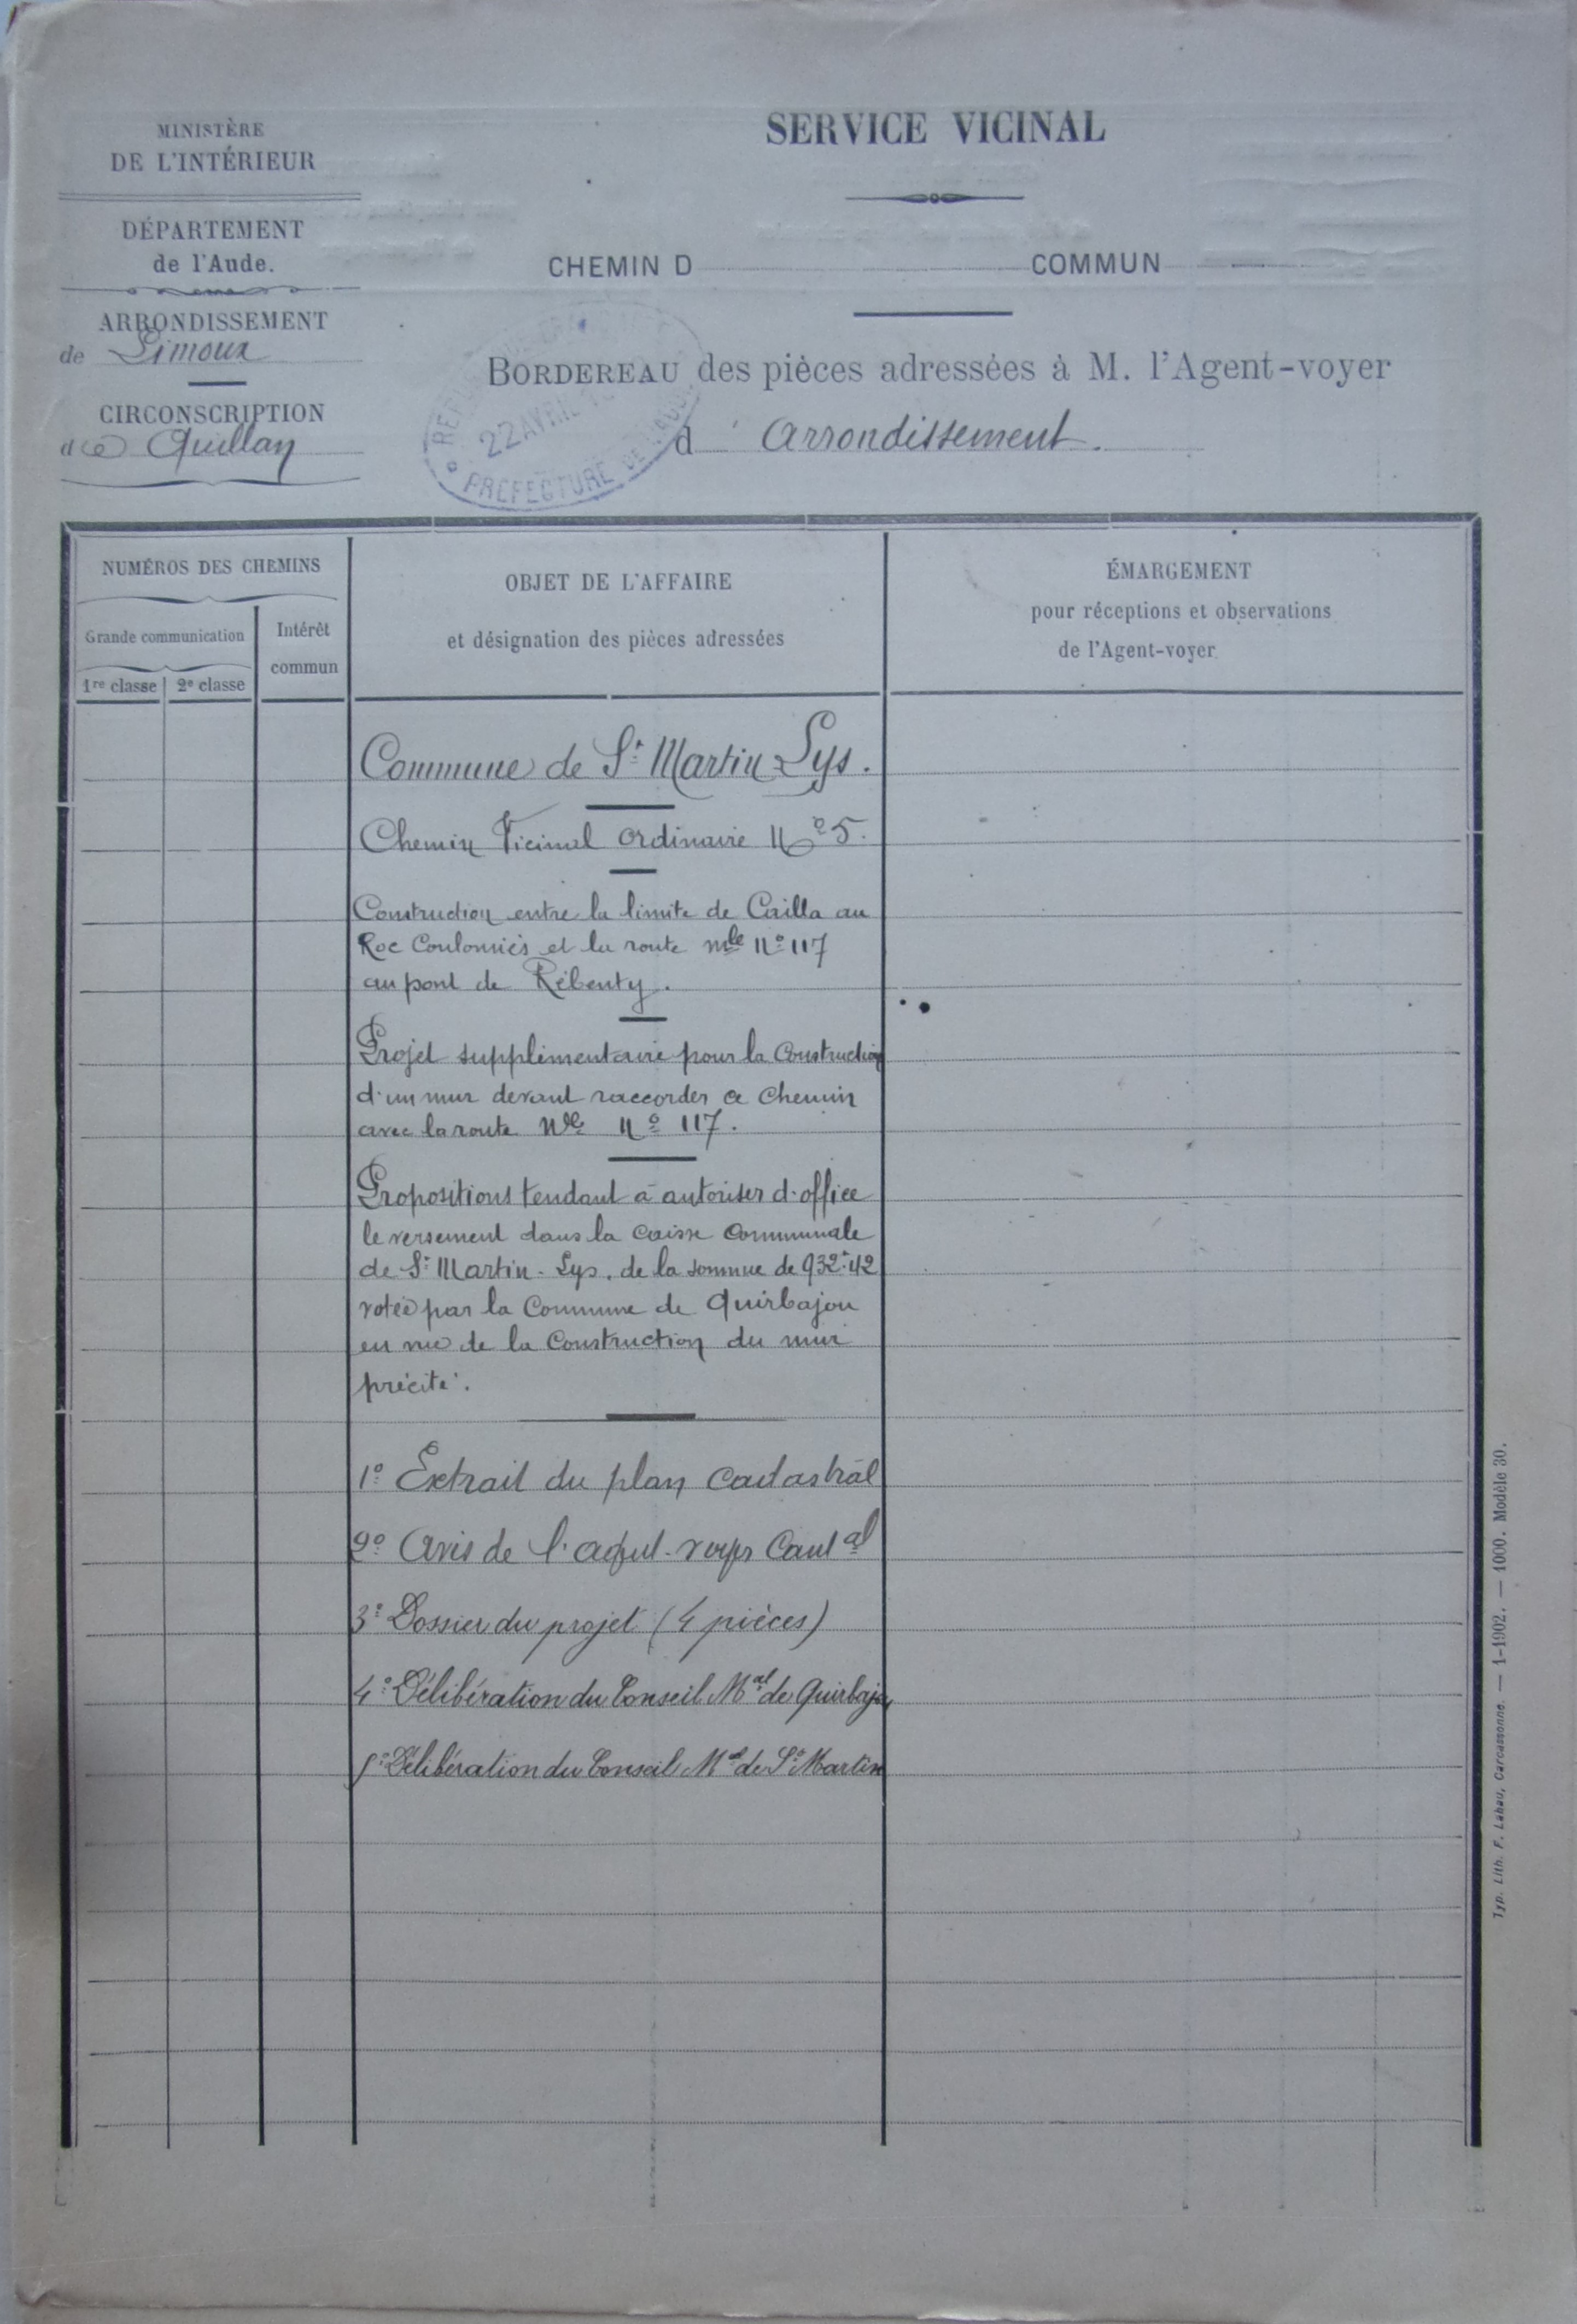 MINISTÈRE
DE L'INTÉRIEUR
DÉPARTEMENT
de l'Aude.
ARRONDISSEMENT
de Limoux
CIRCONSCRIPTION
de Quillan
SERVICE VICINAL
CHEMIN D COMMUN
BORDEREAU des pièces adressées à M. l'Agent-voyer
d' Arrondissement.
22 AVRIL
PREFECTURE DE L'AUDE
NUMÉROS DES CHEMINS
Grande communication
1re classe
2e classe
Intérêt
commun
OBJET DE L'AFFAIRE
et désignation des pièces adressées
ÉMARGEMENT
pour réceptions et observations
de l'Agent-voyer
Commune de St Martin-Lys.
Chemin Vicinal ordinaire No 5.
Construction entre la limite de Cailla au
Roc Coulouniès et la route nle No 117
au pont de Rébenty.
Projet supplémentaire pour la Construction
d'un mur devant raccorder ce Chemin
avec la route Nle No 117.
Propositions tendant à autoriser d'office
le versement dans la caisse Communale
de St Martin-Lys, de la somme de 932f.42
votée par la Commune de Quirbajou
en vue de la Construction du mur
précité.
1o Extrait du plan Cadastral
2o Avis de l'agent-voyer Cantal
3o Dossier du projet (4 pièces)
4o Délibération du Conseil Mal de Quirbajou
5o Délibération du Conseil Mal de St Martin
Typ. Lith. F. Labau, Carcassonne. — 1-1902. — 1000. Modèle 30.